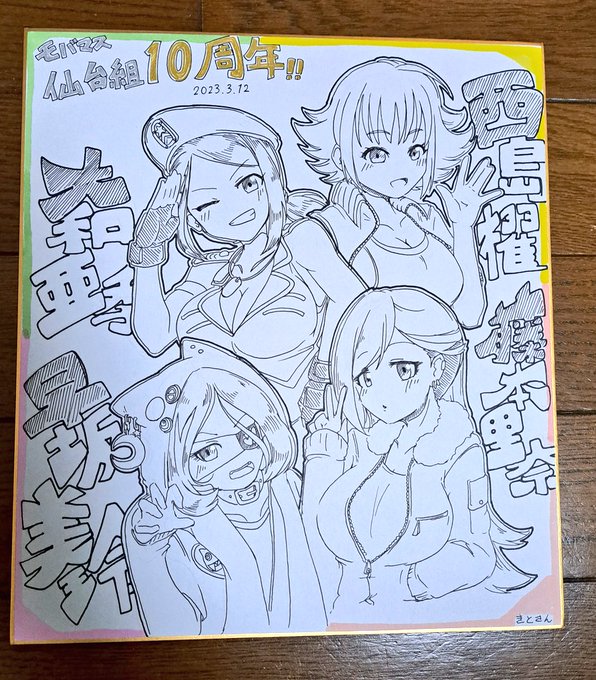 モバマス
仙台組10周年!!
2023.3.12
大和亜季
西島櫂
早坂美玲
藤本里奈
さとさん